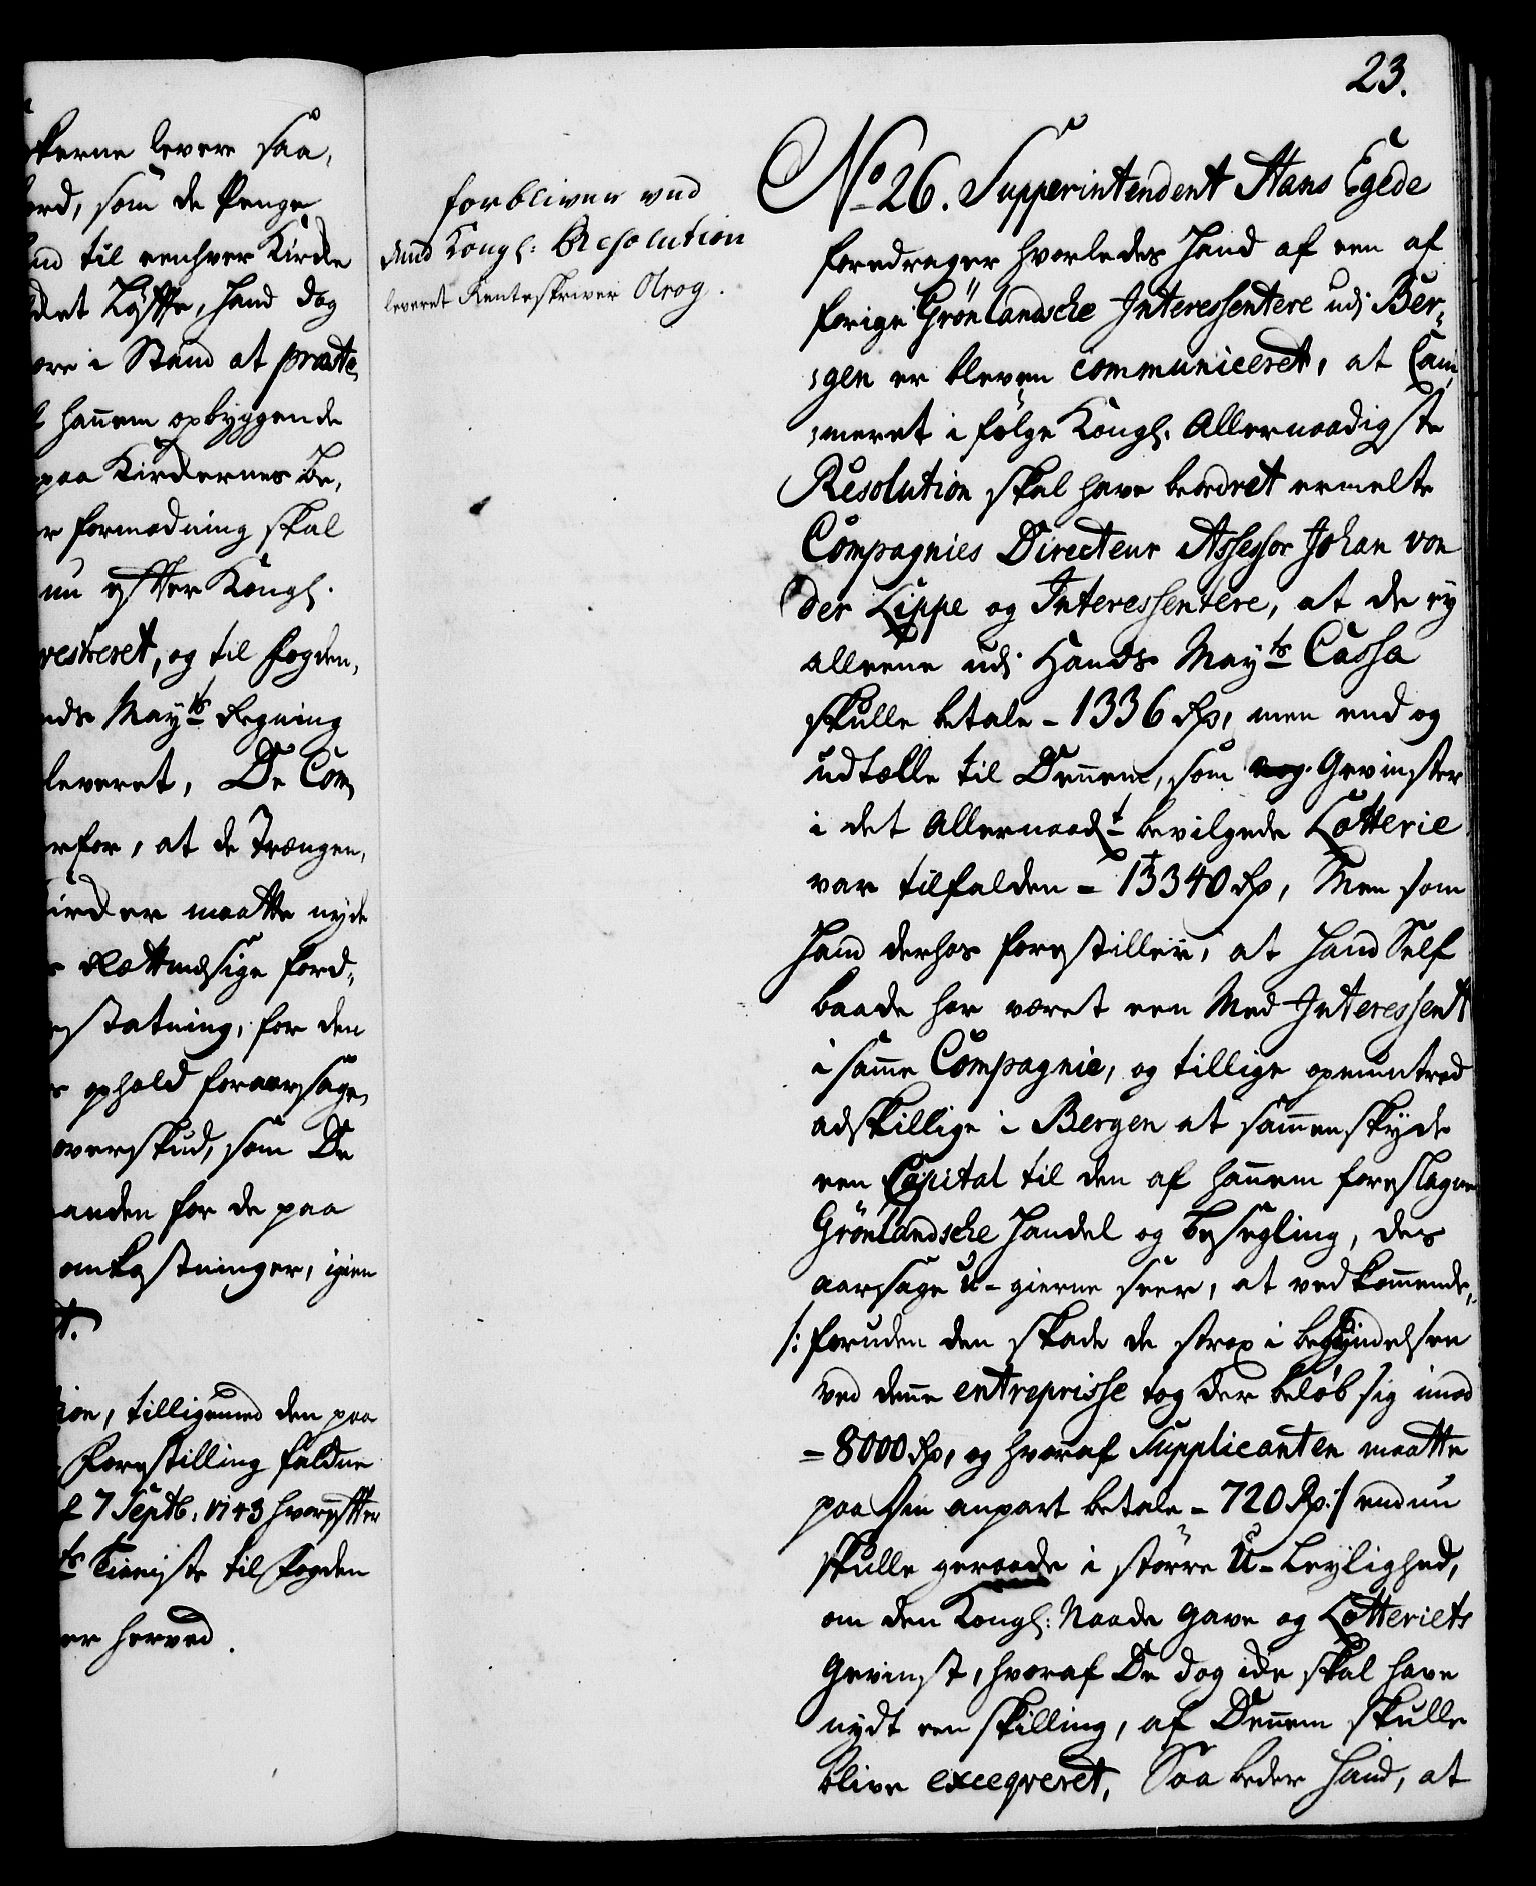 kerne levere saa,
ord, som de Penge
nd til eenhver Kircke
det Kiøffte, hand dog
ere i Stand at præste,
hannem opbyggende
paa Kirckernes be,
r formodning skal
nu effter Kongl.
restreret, og til Fogden,
nds Mayts Regning
leveret, De Com
rfor, at de Trængen,
ircker maatte nyde
Rettmæssige ford,
rstatning, for den
ophold foraarsage,
overskud, som De
anden for de paa
omkostninger, igien
t.
ion, tilligemed den paa
Forestilling faldne
7 Septb. 1743 hvoreffter
ts Tieniste til Fogden
er herved.
23.
forbliver ved
dend Kongl: Resolution
leveret Renteskriver Krog.
No 26. Supperintendent Hans Egede
foredrager hvorledes hand af een af
forige Grönlandsche Interessentere udj Ber,
gen er bleven communiceret, at Cam
meret i følge Kongl. Allernaadigste
Resolution skal have beordret ermelte
Compagnies Directeur Assessor Johan von
der Lippe og Interessentere, at de ey
alleene udj Hands Mayts Cassa
skulle betale - 1336 Rd, men end og
udtælle til Dennem, som Gevinster
i det Allernaadt bevilgede Lotterie
var tilfalden - 13340 Rd, Men som
hand derhos forestiller, at hand Self
baade har været een Med Interessent
i samme Compagnie, og tillige opmuntred
adskillige i Bergen at sammenskyde
een Capital til den af hannem foreslagne
Grönlandsche Handel og besegling, des
aarsage u-gierne seer, at vedkommende,
/: foruden den skade de strax i begyndelsen
ved denne entreprisse tog der beløb sig imod
- 8000 Rd, og hvoraf Supplicanten maatte
paa sin anpart betale - 720 Rd :/ endnu
skulle geraade i større U-Leylighed,
om den Kongl: Naade Gave og Lotteriets
Gevinst, hvoraf De dog icke skal have
nydt een skilling, af Dennem skulle
blive exceqveret, Saa beder Hand, at